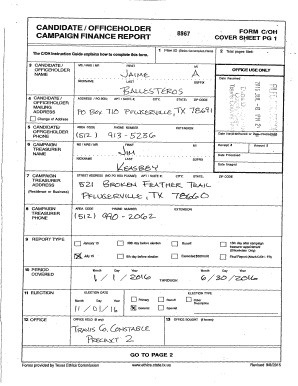 CANDIDATE / OFFICEHOLDER
CAMPAIGN FINANCE REPORT
8867
FORM C/OH
COVER SHEET PG 1
The C/OH Instruction Guide explains how to complete this form.
1 Filer ID (Ethics Commission Filers)
2 Total pages filed:
3 CANDIDATE / OFFICEHOLDER NAME
MS / MRS / MR FIRST MI
Jaime A
NICKNAME LAST SUFFIX
Ballesteros
OFFICE USE ONLY
Date Received
4 CANDIDATE / OFFICEHOLDER MAILING ADDRESS
Change of Address
ADDRESS / PO BOX; APT / SUITE #; CITY; STATE; ZIP CODE
PO Box 710 Pflugerville, TX 78691
5 CANDIDATE/ OFFICEHOLDER PHONE
AREA CODE PHONE NUMBER EXTENSION
(512) 913-5236
Date Hand-delivered or Date Postmarked
6 CAMPAIGN TREASURER NAME
MS / MRS / MR FIRST MI
Jim
NICKNAME LAST SUFFIX
Keasbey
Receipt # Amount $
Date Processed
Date Imaged
7 CAMPAIGN TREASURER ADDRESS
(Residence or Business)
STREET ADDRESS (NO PO BOX PLEASE); APT / SUITE #; CITY; STATE; ZIP CODE
521 Broken Feather Trail
Pflugerville, TX 78660
8 CAMPAIGN TREASURER PHONE
AREA CODE PHONE NUMBER EXTENSION
(512) 990-2062
9 REPORT TYPE
January 15
30th day before election
Runoff
15th day after campaign treasurer appointment (Officeholder Only)
July 15
8th day before election
Exceeded $500 limit
Final Report (Attach C/OH - FR)
10 PERIOD COVERED
Month Day Year
1 / 1 / 2016
THROUGH
Month Day Year
6 / 30 / 2016
11 ELECTION
ELECTION DATE
Month Day Year
11 / 01 / 16
ELECTION TYPE
Primary
Runoff
Other Description
General
Special
12 OFFICE
OFFICE HELD (if any)
Travis Co. Constable
Precinct 2
13 OFFICE SOUGHT (if known)
GO TO PAGE 2
Forms provided by Texas Ethics Commission
www.ethics.state.tx.us
Revised 9/8/2015